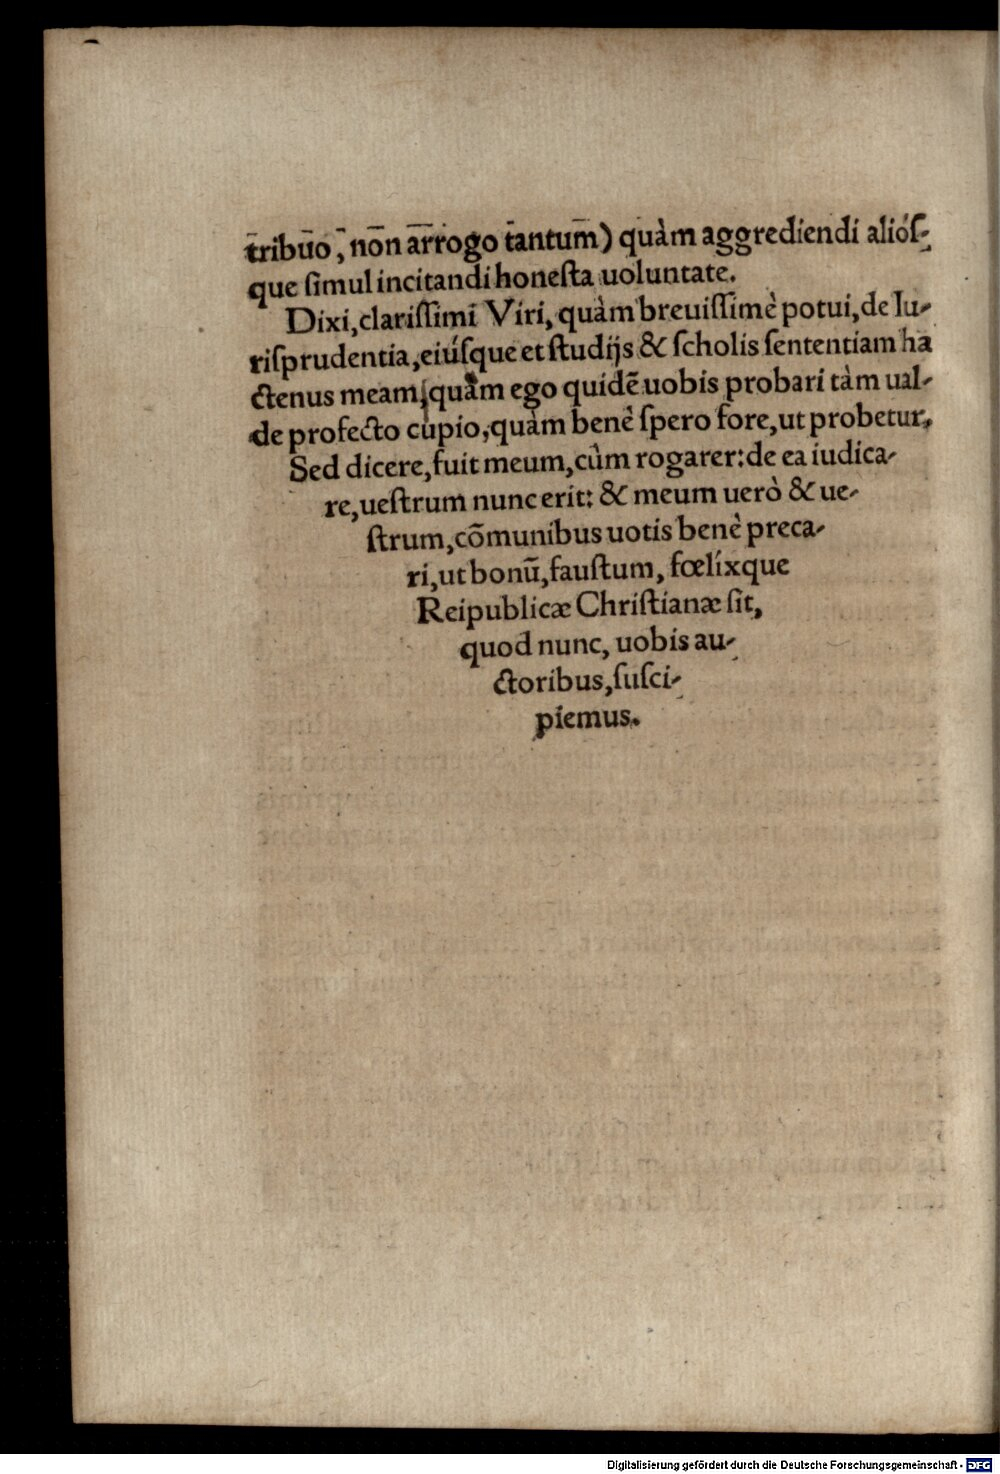 tribuo, non arrogo tantum) quàm aggrediendi aliós-
que ſimul incitandi honeſta uoluntate.
Dixi, clariſſimi Viri, quàm breuiſſimè potui, de Iu-
riſprudentia, eiúſque et ſtudijs & ſcholis ſententiam ha
ctenus meam, quàm ego quidẽ uobis probari tàm ual-
de profecto cupio, quàm benè ſpero fore, ut probetur.
Sed dicere, fuit meum, cùm rogarer: de ea iudica-
re, ueſtrum nunc erit: & meum uerò & ue-
ſtrum, cõmunibus uotis benè preca-
ri, ut bonũ, fauſtum, fœlíxque
Reipublicæ Chriſtianæ ſit,
quod nunc, uobis au-
ctoribus, ſuſci-
piemus.
Digitalisierung gefördert durch die Deutsche Forschungsgemeinschaft - DFG